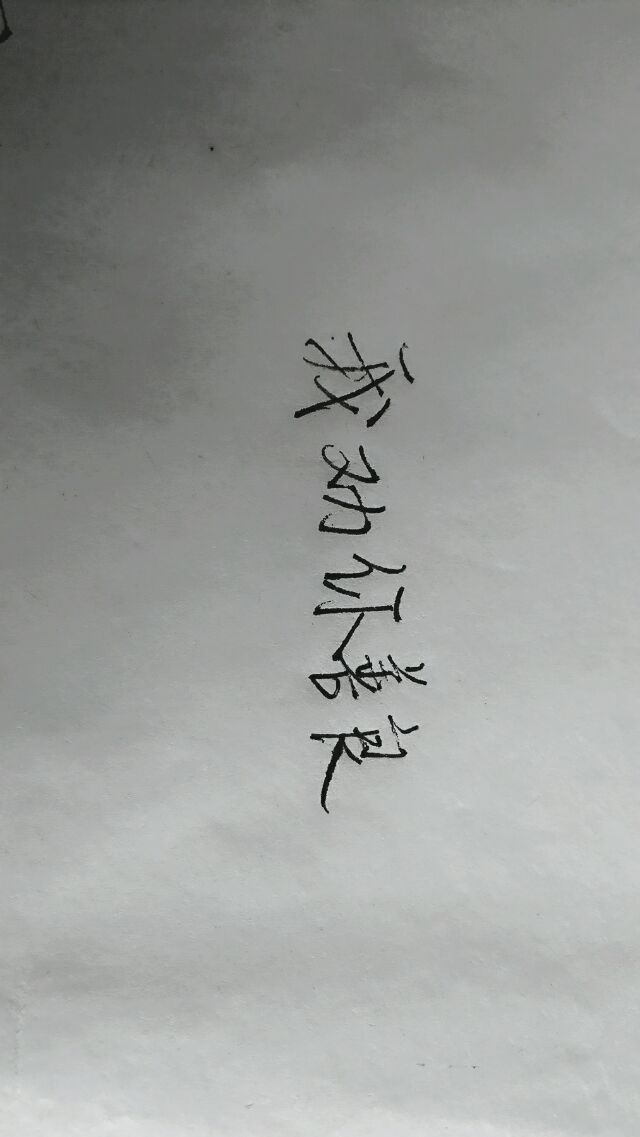 我劝你善良